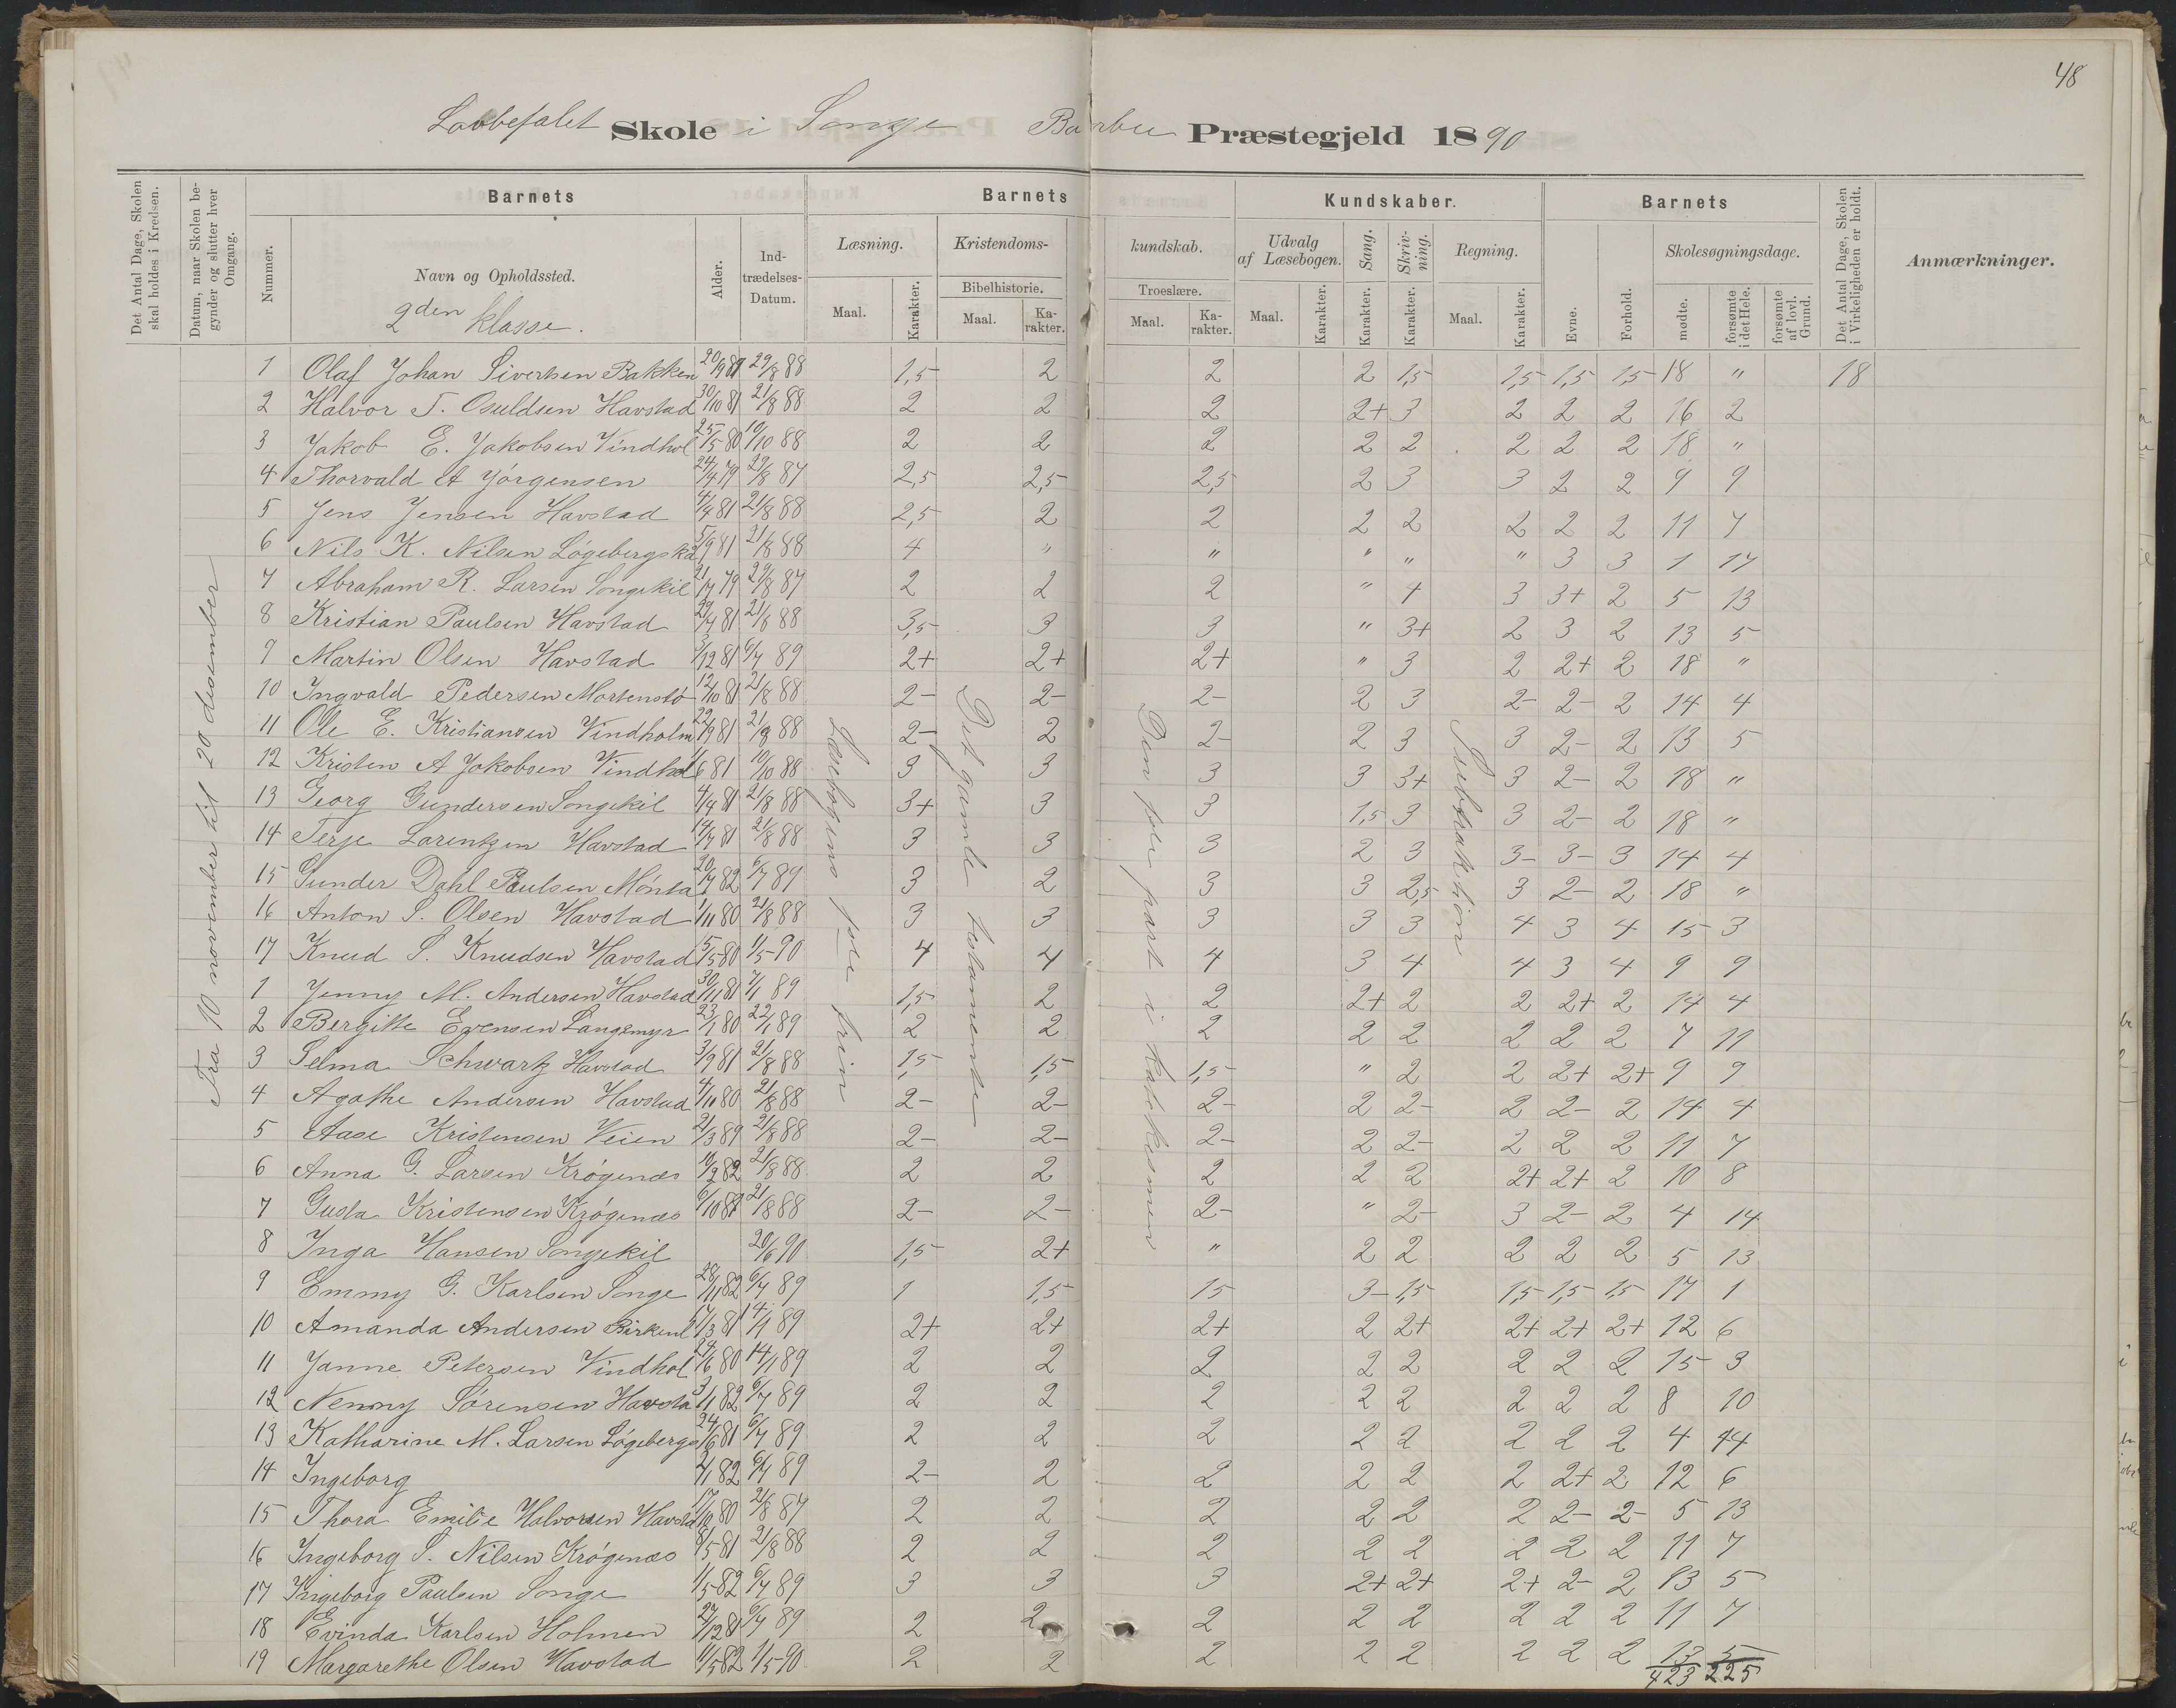 48
Lovbefalet Skole i Songe Barbu Præstegjeld 1890
Det Antal Dage, Skolen skal holdes i Kredsen.
Datum, naar Skolen begynder og slutter hver Omgang.
Barnets
Barnets
Kundskaber.
Barnets
Det Antal Dage, Skolen i Virkeligheden er holdt.
Anmærkninger.
Nummer.
Navn og Opholdssted.
Alder.
Indtrædelses-Datum.
Læsning.
Kristendoms-
kundskab.
Udvalg af Læsebogen.
Sang.
Skrivning.
Regning.
Evne.
Forhold.
Skolesøgningsdage.
Bibelhistorie.
Troeslære.
Maal.
Karakter.
Maal.
Karakter.
Maal.
Karakter.
Maal.
Karakter.
Karakter.
Karakter.
Maal.
Karakter.
mødte.
forsømte i det Hele.
forsømte af lovl. Grund.
2den klasse.
Fra 10 november til 20 desember
Læsebogens 1ste trin
Det gamle testamente
Den 1ste part i katekismen
Subtraktion
1 Olaf Johan Sivertsen Bakken 20/9 81 29/8 88 1,5 2 2 2 1,5 1,5 1,5 1,5 18 " 18
2 Halvor T. Osuldsen Havstad 30/10 81 21/8 88 2 2 2 2+ 3 2 2 2 16 2
3 Jakob E. Jakobsen Vindhol 25/5 80 10/10 88 2 2 2 2 2 2 2 2 18 "
4 Thorvald A Jörgensen 24/4 79 29/8 87 2,5 2,5 2,5 2 3 3 2 2 9 9
5 Jens Jensen Havstad 4/4 81 21/8 88 2,5 2 2 2 2 2 2 2 11 7
6 Nils K. Nilsen Løgebergskil 5/9 81 21/8 88 4 " " " " " 3 3 1 17
7 Abraham R. Larsen Songekil 21/7 79 29/8 87 2 2 2 " 4 3 3+ 2 5 13
8 Kristian Paulsen Havstad 29/7 81 21/8 88 3,5 3 3 " 3+ 2 3 2 13 5
9 Martin Olsen Havstad 3/12 81 6/7 89 2+ 2+ 2+ " 3 2 2+ 2 18 "
10 Ingvald Pedersen Mortenstø 12/10 81 21/8 88 2- 2- 2- 2 3 2- 2- 2 14 4
11 Ole E. Kristiansen Vindholm 22/9 81 21/8 88 2- 2 2- 2 3 3 2- 2 13 5
12 Kristen A Jakobsen Vindhol 1/6 81 10/10 88 3 3 3 3 3+ 3 2- 2 18 "
13 Georg Gundersen Songekil 4/4 81 21/8 88 3+ 3 3 1,5 3 3 2- 2 18 "
14 Terje Lorentzen Havstad 14/7 81 21/8 88 3 3 3 2 3 3- 3- 3 14 4
15 Gunder Dahl Paulsen 20/7 82 6/7 89 3 2 3 3 2,5 3 2- 2 18 "
16 Anton S. Olsen Havstad 1/11 80 21/8 88 3 3 3 3 3 4 3 4 15 3
17 Knud S. Knudsen Havstad 5/5 80 1/5 90 4 4 4 3 4 4 3 4 9 9
1 Jenny M. Andersen Havstad 30/11 81 7/1 89 1,5 2 2 2+ 2 2 2+ 2 14 4
2 Bergitte Evensen Langemyr 23/1 80 22/1 89 2 2 2 2 2 2 2 2 7 11
3 Selma Schwartz Havstad 3/9 81 21/8 88 1,5 1,5 1,5 " 2 2 2+ 2+ 9 9
4 Agathe Andersen Havstad 4/11 80 21/8 88 2- 2- 2- 2 2- 2 2- 2 14 4
5 Aase Kristensen Veien 21/3 89 21/8 88 2- 2- 2- 2 2- 2 2 2 11 7
6 Anna G. Larsen Krøgenes 10/2 82 21/8 88 2 2 2 2 2 2+ 2+ 2 10 8
7 Gusta Kristensen Krøgenæs 6/10 81 21/8 88 2- 2- 2- " 2- 3 2- 2 4 14
8 Inga Hansen Songekil 20/6 90 1,5 2+ " 2 2 2 2 2 5 13
9 Emmy G. Karlsen Songe 28/11 82 6/7 89 1 1,5 15 3- 1,5 1,5 1,5 1,5 17 1
10 Amanda Andersen Birkenl 17/3 81 14/1 89 2+ 2+ 2+ 2 2+ 2+ 2+ 2+ 12 6
11 Janne Petersen Vindhol 24/6 80 14/1 89 2 2 2 2 2 2 2 2 15 3
12 Nenny Sørensen Havsta 3/1 82 6/7 89 2 2 2 2 2 2 2 2 8 10
13 Katharine M. Larsen Løgebergs 24/6 81 6/7 89 2 2 2 2 2 2 2 2 4 14
14 Ingeborg 2/1 82 6/7 89 2- 2 2 2 2 2 2+ 2 12 6
15 Thora Emilie Halvorsen Havsta 17/10 80 21/8 87 2 2 2 2 2 2 2- 2- 5 13
16 Ingeborg S. Nilsen Krøgenæs 8/5 81 21/8 88 2 2 2 2 2 2 2 2 11 7
17 Ingeborg Paulsen Songe 1/5 82 6/7 89 3 3 3 2+ 2+ 2+ 2- 2 13 5
18 Evinda Karlsen Holmen 27/12 81 6/7 89 2 2 2 2 2 2 2 2 11 7
19 Margarethe Olsen Havstad 11/5 82 1/5 90 2 2 2 2 2 2 2 2 13 5
423 225